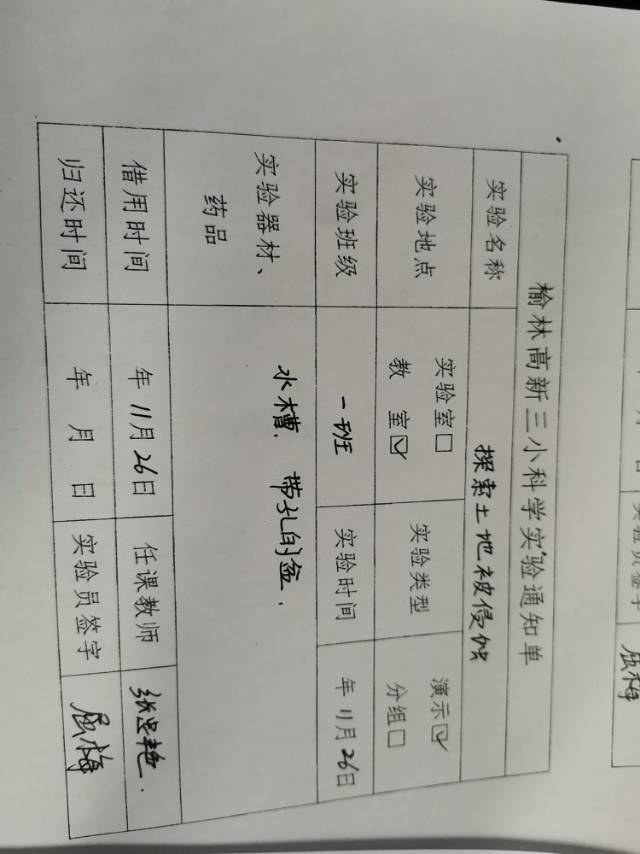 榆林高新三小科学实验通知单
实验名称 探索土地被侵蚀
实验地点 实验室□ 教 室☑ 实验类型 演示☑ 分组□
实验班级 一班 实验时间 年 11月26日
实验器材、
药品 水槽、带孔的盒.
借用时间 年 11月26日 任课教师
归还时间 年 月 日 实验员签字 屈梅
实验员签字 屈梅